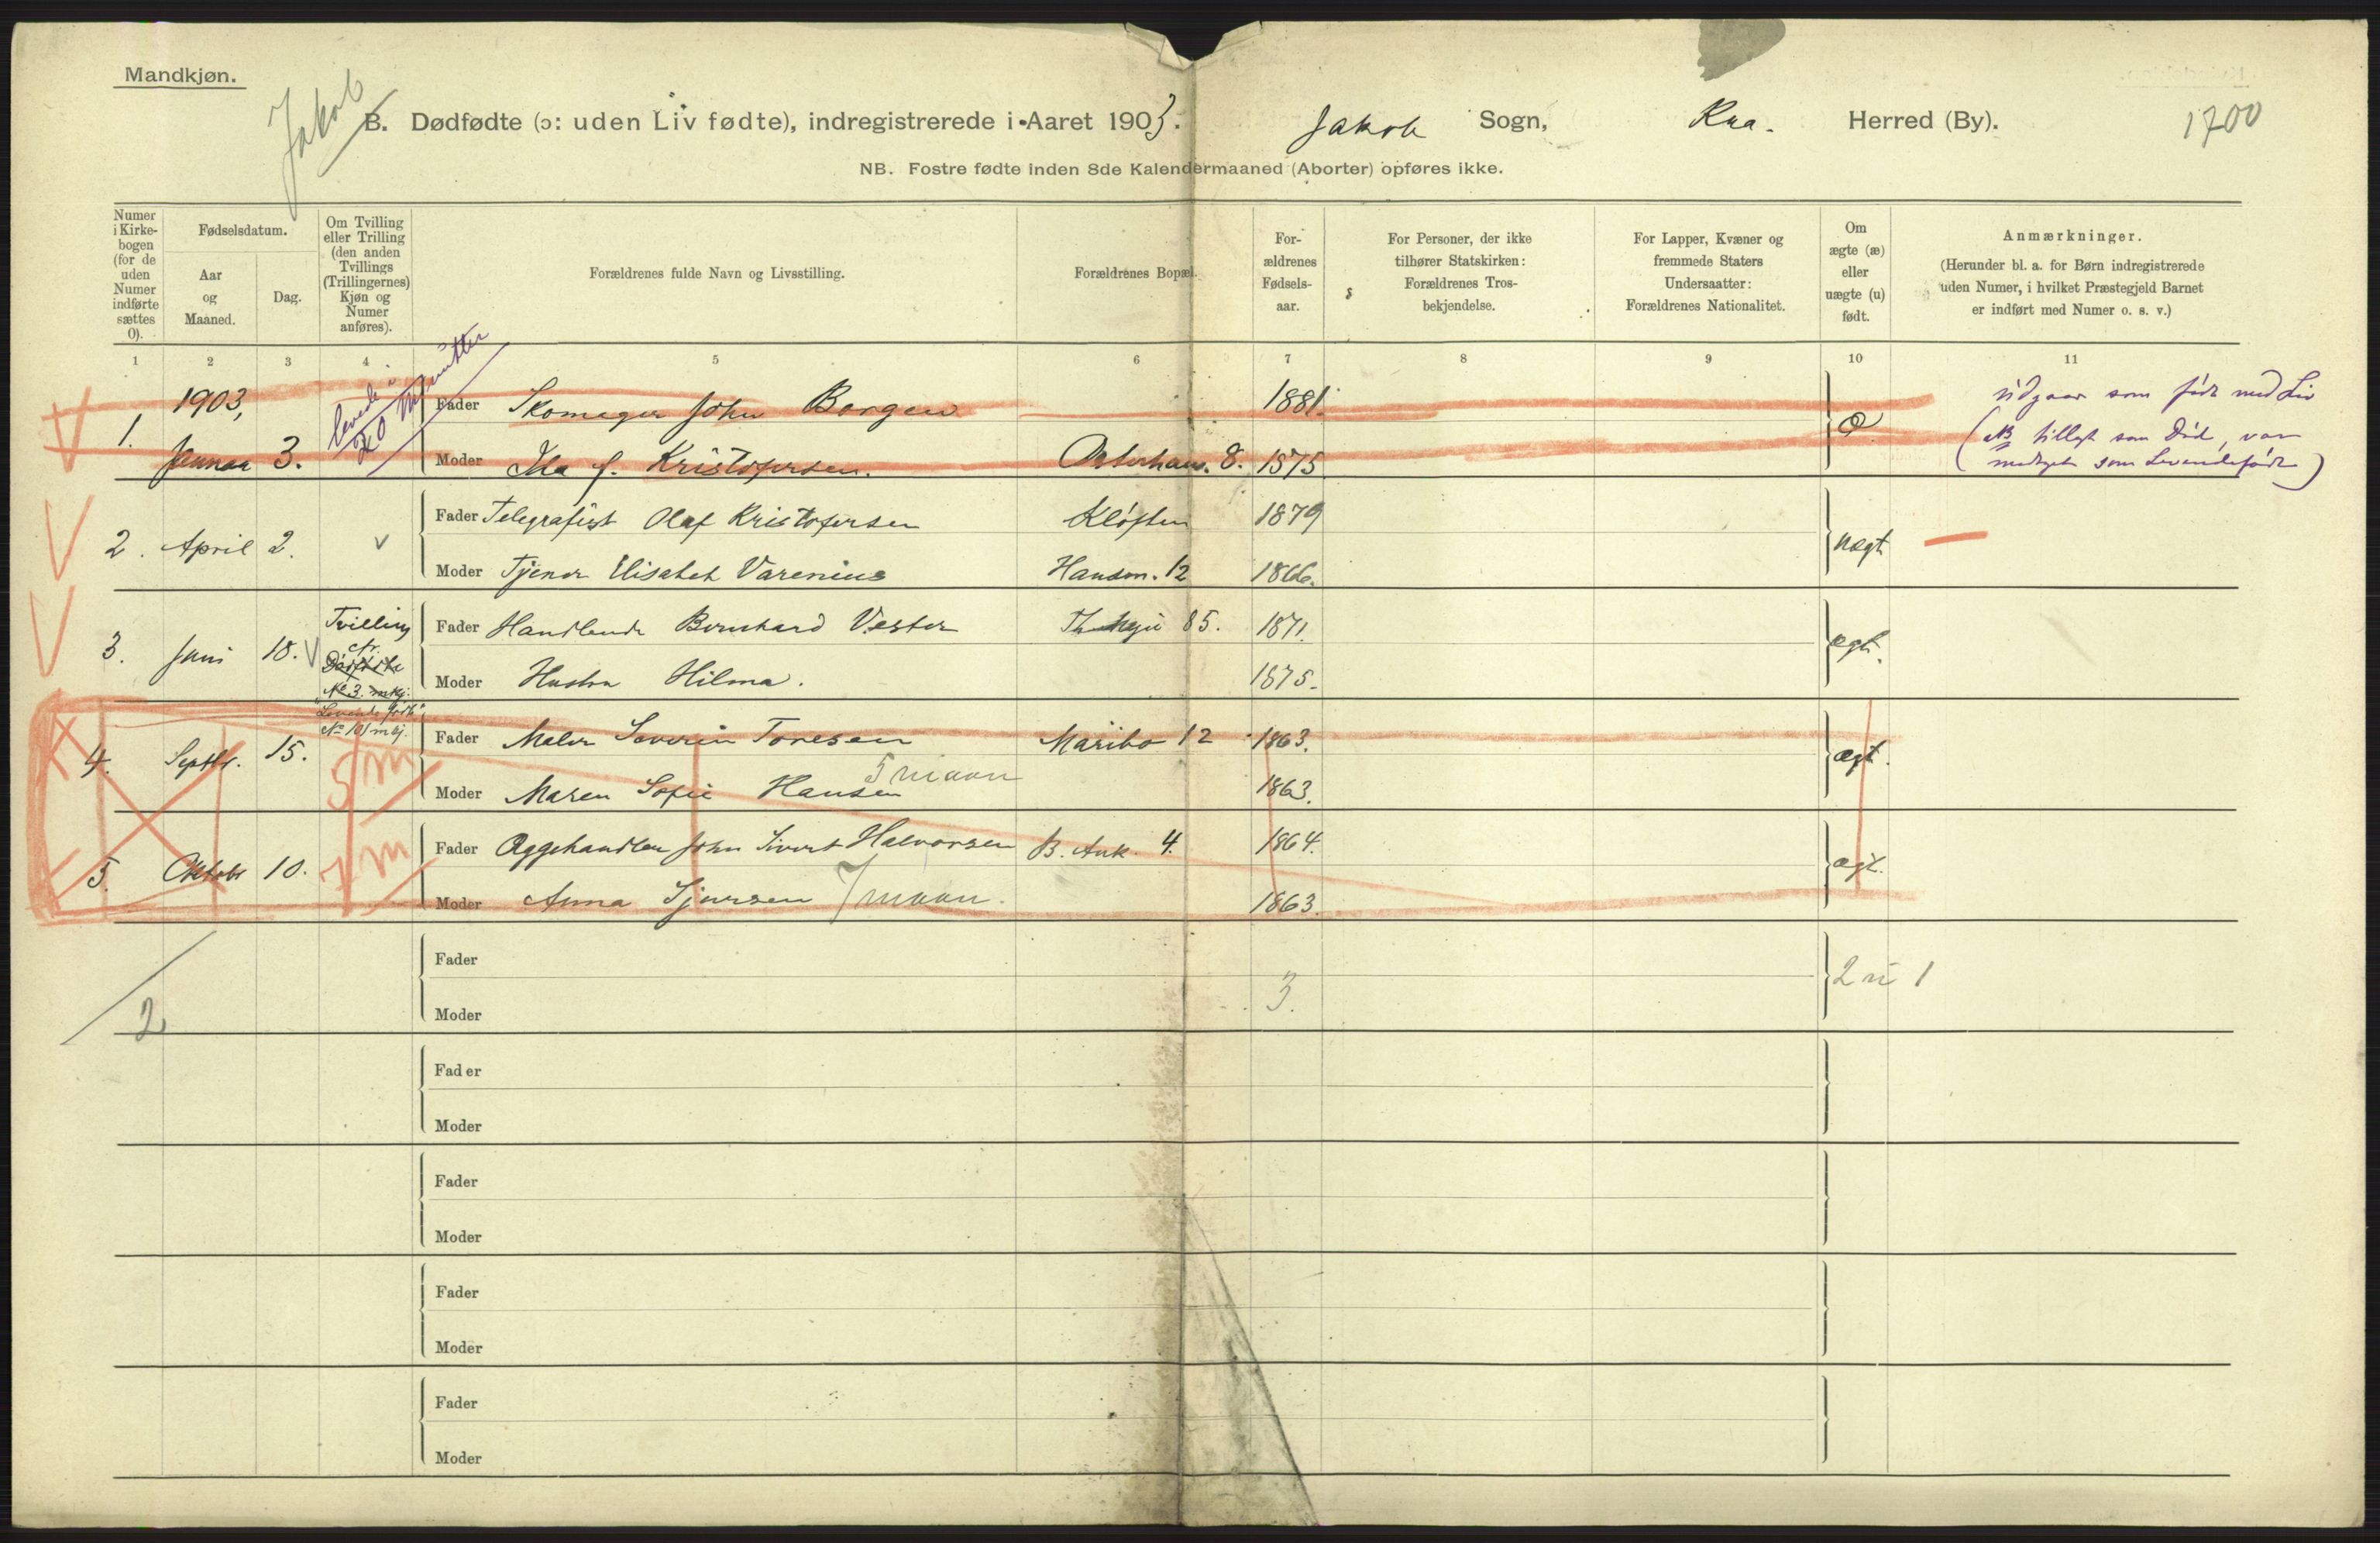 Mandkjøn.
Jakob
B. Dødfødte (ɔ: uden Liv fødte), indregistrerede i Aaret 1903. Jakob Sogn, Kra. Herred (By). 1700
NB. Fostre fødte inden 8de Kalendermaaned (Aborter) opføres ikke.
Numer i Kirkebogen (for de uden Numer indførte sættes 0).
Fødselsdatum.
Aar og Maaned.
Dag.
Om Tvilling eller Trilling (den anden Tvillings (Trillingernes) Kjøn og Numer anføres).
Forældrenes fulde Navn og Livsstilling.
Forældrenes Bopæl.
Forældrenes Fødselsaar.
For Personer, der ikke tilhører Statskirken: Forældrenes Trosbekjendelse.
For Lapper, Kvæner og fremmede Staters Undersaatter: Forældrenes Nationalitet.
Om ægte (æ) eller uægte (u) født.
Anmærkninger.
(Herunder bl. a. for Børn indregistrerede uden Numer, i hvilket Præstegjeld Barnet er indført med Numer o. s. v.)
1 2 3 4 5 6 7 8 9 10 11
1903,
levede i 20 Minutter
Fader Skomager John Borgen 1881.
udgaar som født med Liv
1. Januar 3. Moder Ida f. Kristofersen. Osterhaus. 8. 1875
(NB tillagt som Død, var
medtaget som Levendefødt)
Fader Telegrafist Olaf Kristofersen Kløften 1879
2. April 2. v uægt
Moder Tjener Elisabet Varenius Hausm. 12 1866.
Tvilling
Fader Handlende Bernhard Vester Th. Meyer 85. 1871.
3. Juni 18. ægt.
cfr. Dødfødte
No 3. mkj.
Moder Hustru Hilma. 1875.
Levende født
No 101 mkj.
Fader Maler Severin Toresen Maribo 12 1863.
4. Septbr. 15. 5 m ægt.
5 maan
Moder Maren Sofie Hansen 1863.
Fader Æggehandler John Sivert Halvorsen B. Ank. 4. 1864.
5. Oktober 10. 7 m ægt.
Moder Anna Sjursen 7 maan. 1863.
Fader
2 3. 2 u 1
Moder
Fader
Moder
Fader
Moder
Fader
Moder
Fader
Moder